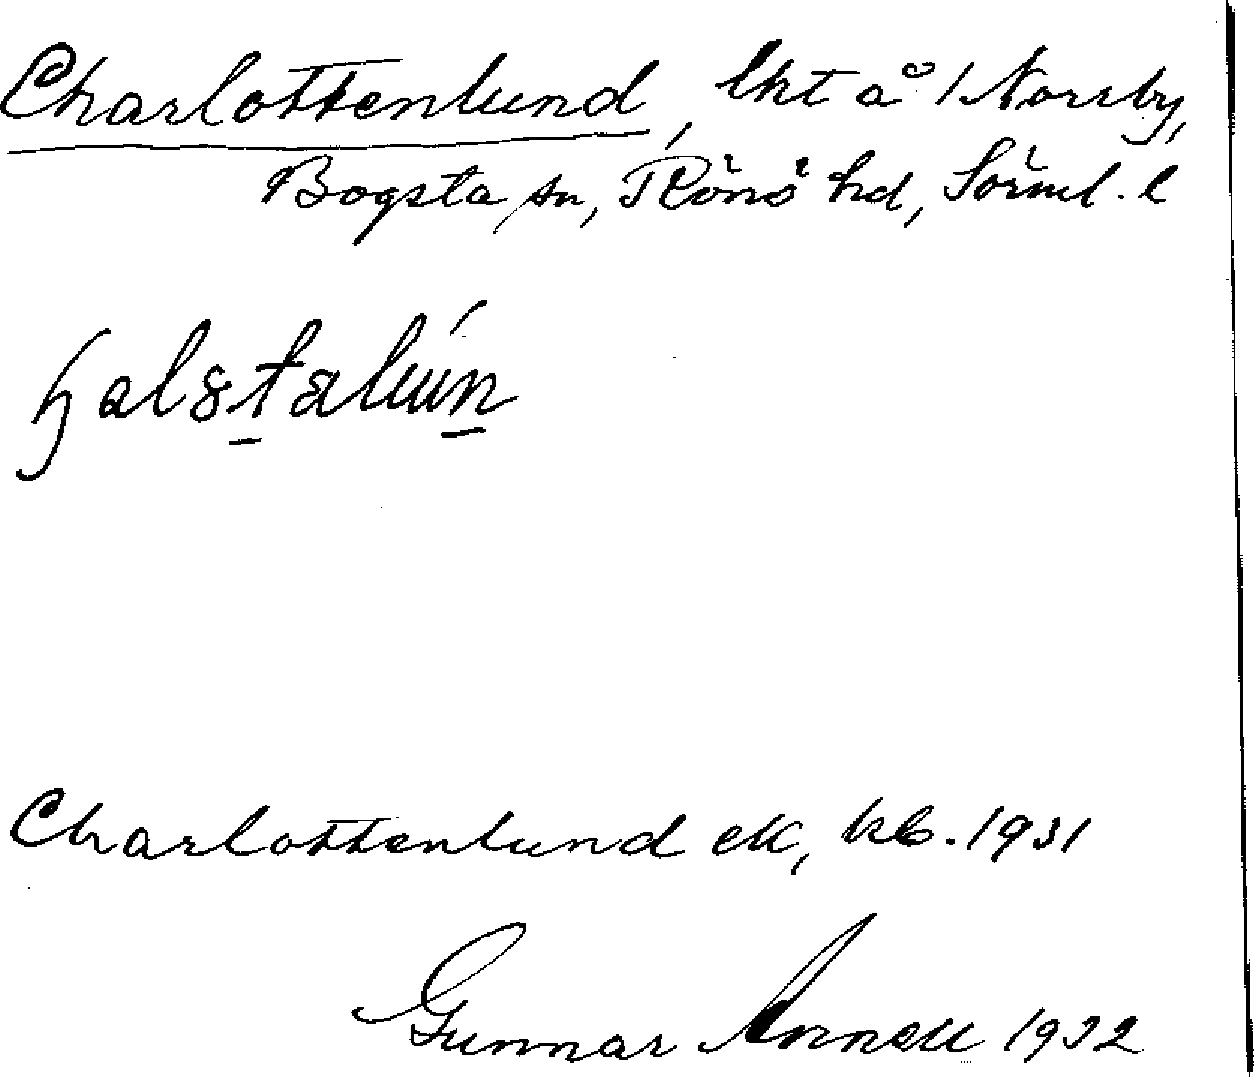 Charlottenlund, lht å /Norrby,
Bogsta sn, Rönö hd, Sörml. l
Charlottenlund ek, kb. 1931
Gunnar Annell 1932